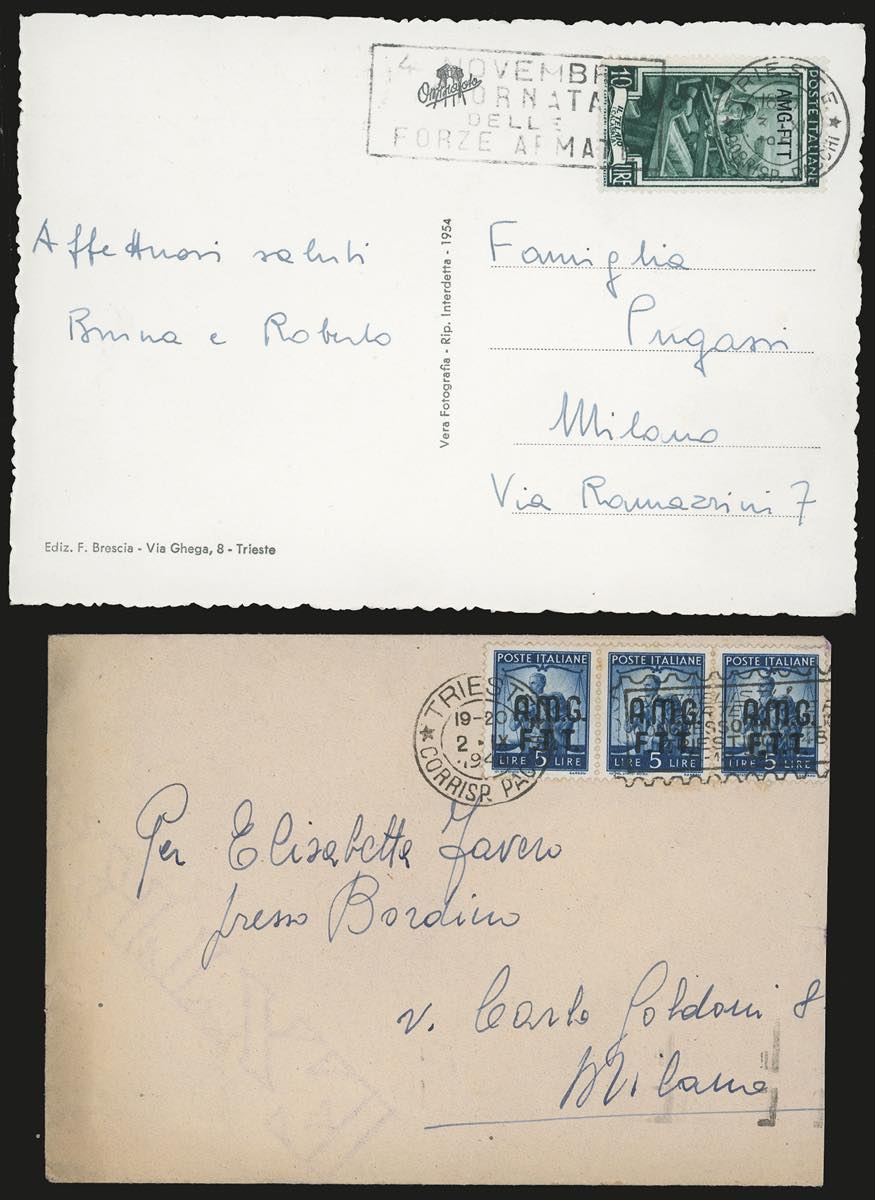 4 NOVEMBRE
GIORNATA
DELLE
FORZE ARMATE
10
IL TELAIO
LIRE
AMG-FTT
POSTE ITALIANE
TRIESTE
Affettuosi saluti
Bruna e Roberto
Vera Fotografia - Rip. Interdetta - 1954
Famiglia
Pugassi
Milano
Via Ramazzini 7
Ediz. F. Brescia - Via Ghega, 8 - Trieste
TRIESTE
19-20
2 · IX
CORRISP. PAC
POSTE ITALIANE POSTE ITALIANE POSTE ITALIANE
A.M.G. A.M.G. A.M.G.
F.T.T. F.T.T. F.T.T.
LIRE 5 LIRE LIRE 5 LIRE LIRE 5 LIRE
Per Elisabetta Favero
presso Bordino
v. Carlo Goldoni 8
Milano